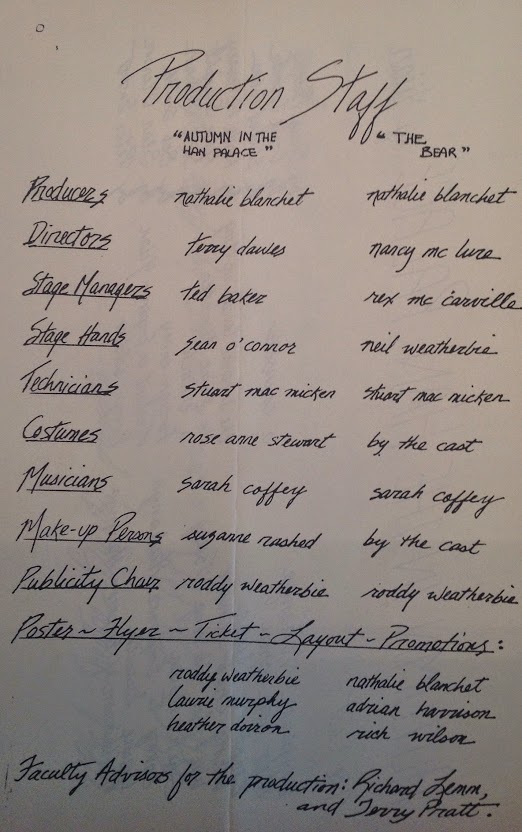 Production Staff
"AUTUMN IN THE HAN PALACE" "THE BEAR"
Producers nathalie blanchet nathalie blanchet
Directors terry dawes nancy mc lure
Stage Managers ted baker rex mc carville
Stage Hands sean o'connor neil weatherbie
Technicians stuart mac micken stuart mac micken
Costumes rose anne stewart by the cast
Musicians sarah coffey sarah coffey
Make-up Persons suzanne rashed by the cast
Publicity Chair roddy weatherbie roddy weatherbie
Poster ~ Flyer ~ Ticket ~ Layout ~ Promotions:
roddy weatherbie nathalie blanchet
laurie murphy adrian harrison
heather doiron rich wilson
Faculty Advisors for the production: Richard Lemm,
and Terry Pratt.